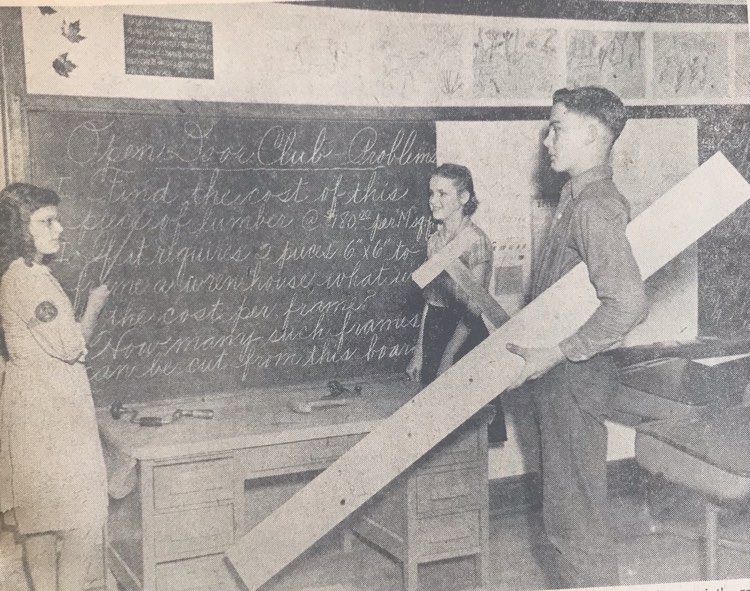 Open Door Club Problems
1. Find the cost of this
piece of lumber @ $80.00 per M
If it requires 2 pieces 6"x6" to
frame a wren house what is
the cost per frame?
How many such frames
can be cut from this board